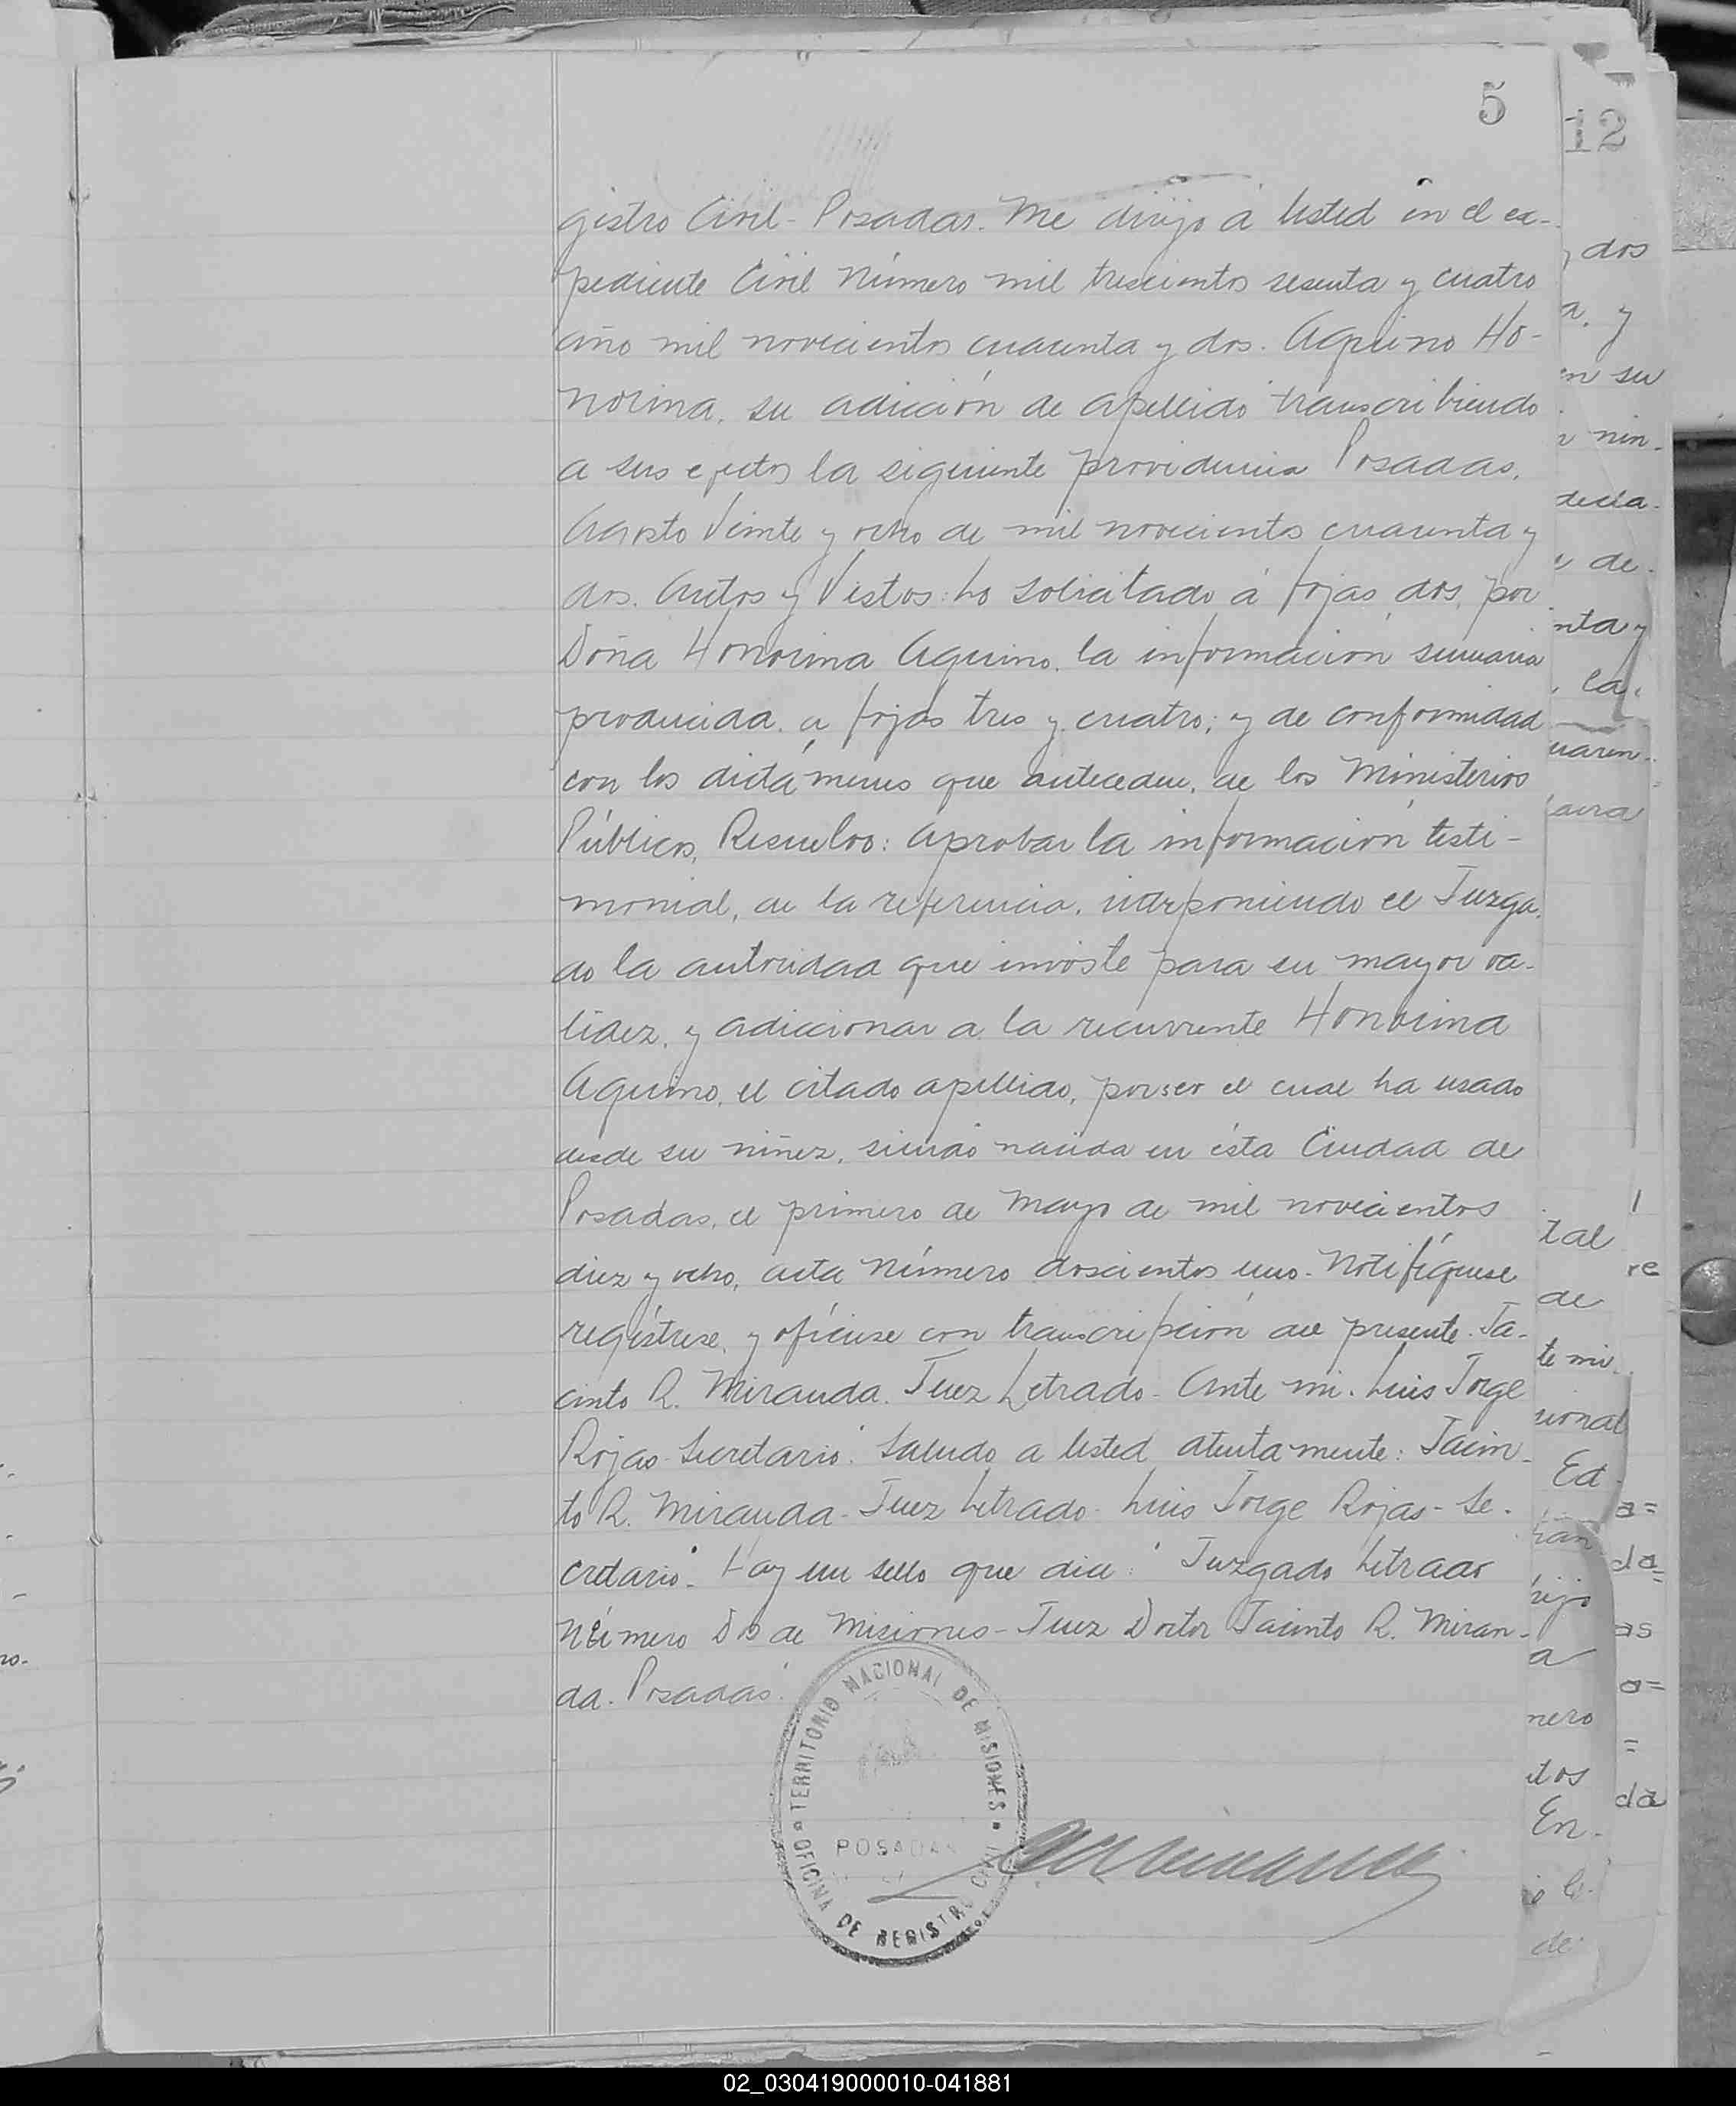 5
12
gistro Civil - Posadas. Me dirijo á Usted en el ex-
pediente Civil Número mil trescientos sesenta y cuatro
año mil novecientos cuarenta y dos. Aquino Ho-
norina, su adición de apellido transcribiendo
a sus efectos la siguiente providencia Posadas,
Agosto Veinte y ocho de mil novecientos cuarenta y
dos. Autos y Vistos: Lo solicitado á fojas dos, por
Doña Honorina Aquino, la información sumaria
producida, a fojas tres y cuatro; y de conformidad
con los dictámenes que anteceden, de los Ministerios
Públicos, Resuelvo: Aprobar la información testi-
monial, de la referencia, interponiendo el Juzga-
do la autoridad que inviste para su mayor va-
lidez, y adiccionar a la recurrente Honorina
Aquino, el citado apellido, por ser el cual ha usado
desde su niñez, siendo nacida en ésta Ciudad de
Posadas, el primero de Mayo de mil novecientos
diez y ocho, acta Número doscientos uno. Notifíquese
regístrese, y ofíciese con transcripción del presente. Ja-
cinto R. Miranda. Juez Letrado - Ante mi. Luis Jorge
Rojas - Secretario". Saludo a Usted atentamente: Jacin-
to R. Miranda - Juez Letrado - Luis Jorge Rojas - Se-
cretario". Hay un sello que dice: "Juzgado Letrado
Número Dos de Misiones - Juez Doctor Jacinto R. Miran-
da. Posadas".
TERRITORIO NACIONAL DE MISIONES
POSADAS
OFICINA DE REGISTRO CIVIL
dos
a, y
en su
nin-
decla-
de-
nta y
la
uaren-
tal
re
de
te mi
cional
Ed
a=
da=
hijo
as
a
a=
nero
=
da
En-
de
02_030419000010-041881